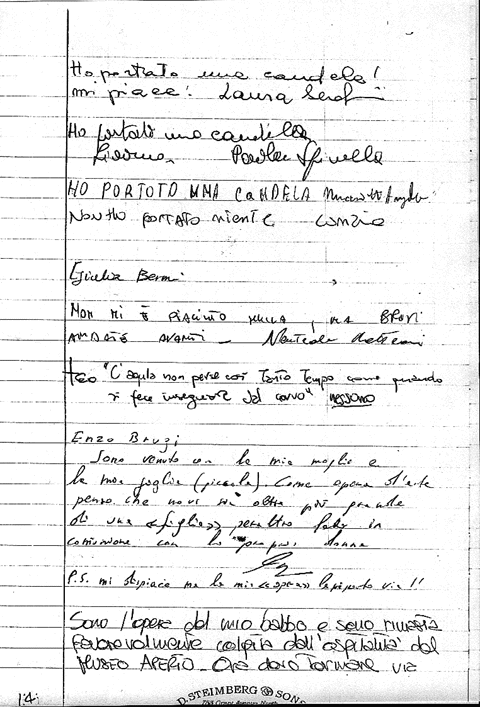 Ho portato una candela!
mi piace! Laura
Ho portato una candela
Paola Spinella
HO PORTOTO UNA CANDELA
NON HO PORTATO NIENTE
Giulia Berni
NON MI È PIACIUTO NULLA, MA BRAVI
ANDATE AVANTI -
teo "L'aquila non perse così tanto tempo come quando
si fece insegnare dal corvo" nessuno
Enzo Brugi
Sono venuto con la mia moglie e
la mia figlia (piccola). Come opera d'arte
penso che non vi sia altra più grande
di una «figlia» peraltro fatta in
comunione con la propria donna
P.S. mi dispiace ma la mia «opera» la riporto via!!
Sono l'opera del mio babbo e sono rimasta
favorevolmente colpita dall'ospitalità del
MUSEO APERTO. Ora devo tornare via
14
D. STEIMBERG & SONS